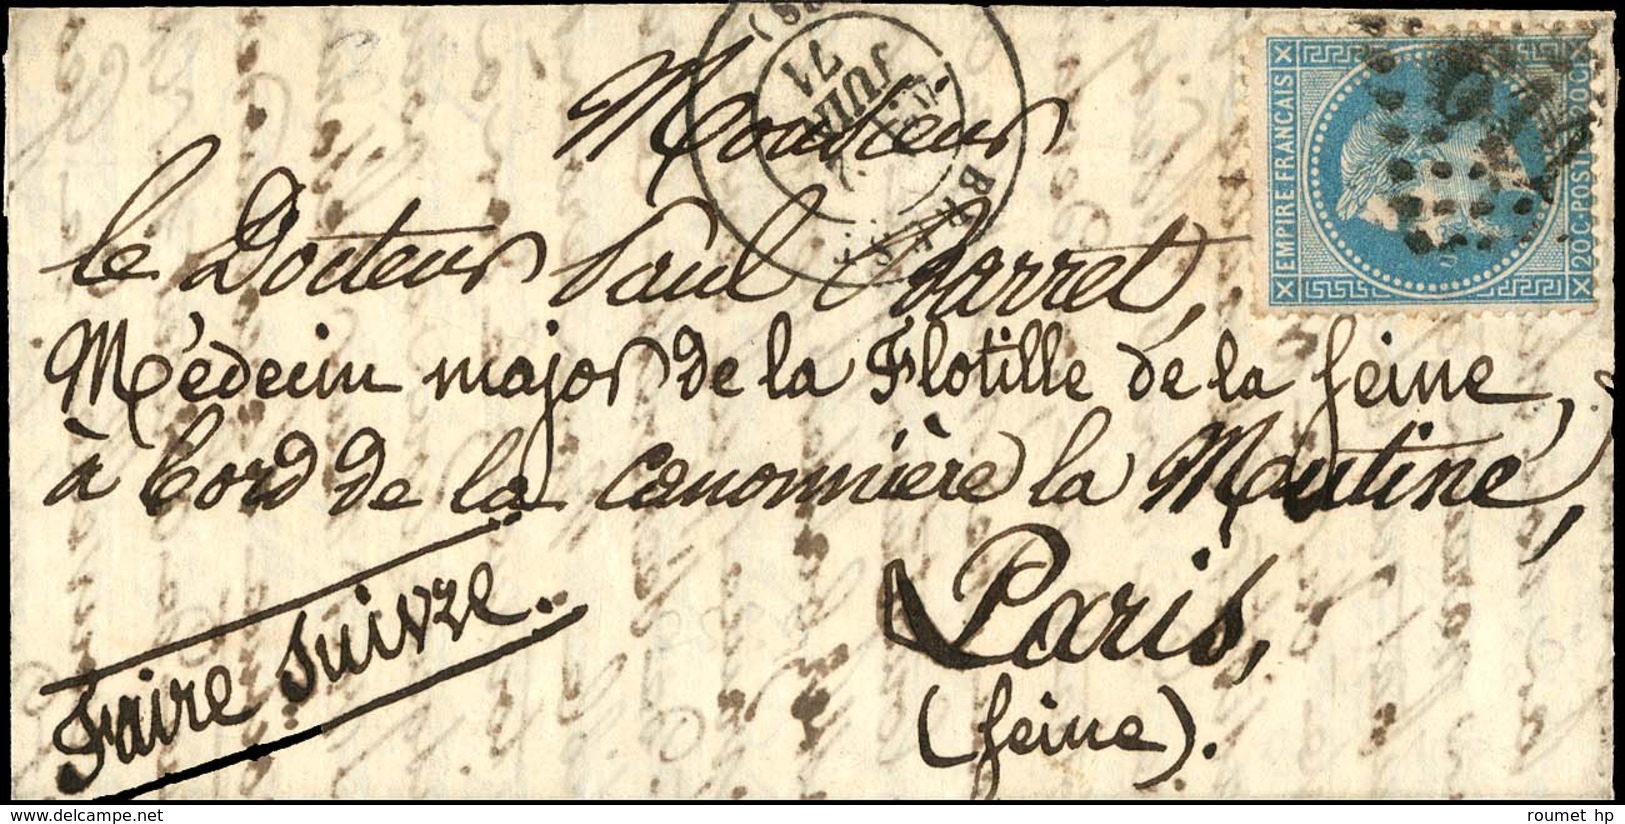 Monsieur
le Docteur Paul Barret,
Médecin major de la Flotille de la Seine,
à bord de la canonnière la Mutine,
Paris,
(Seine).
Faire Suivre.
BREST
JUIL
71
EMPIRE FRANCAIS
20C. POSTES 20C.
roumet hp